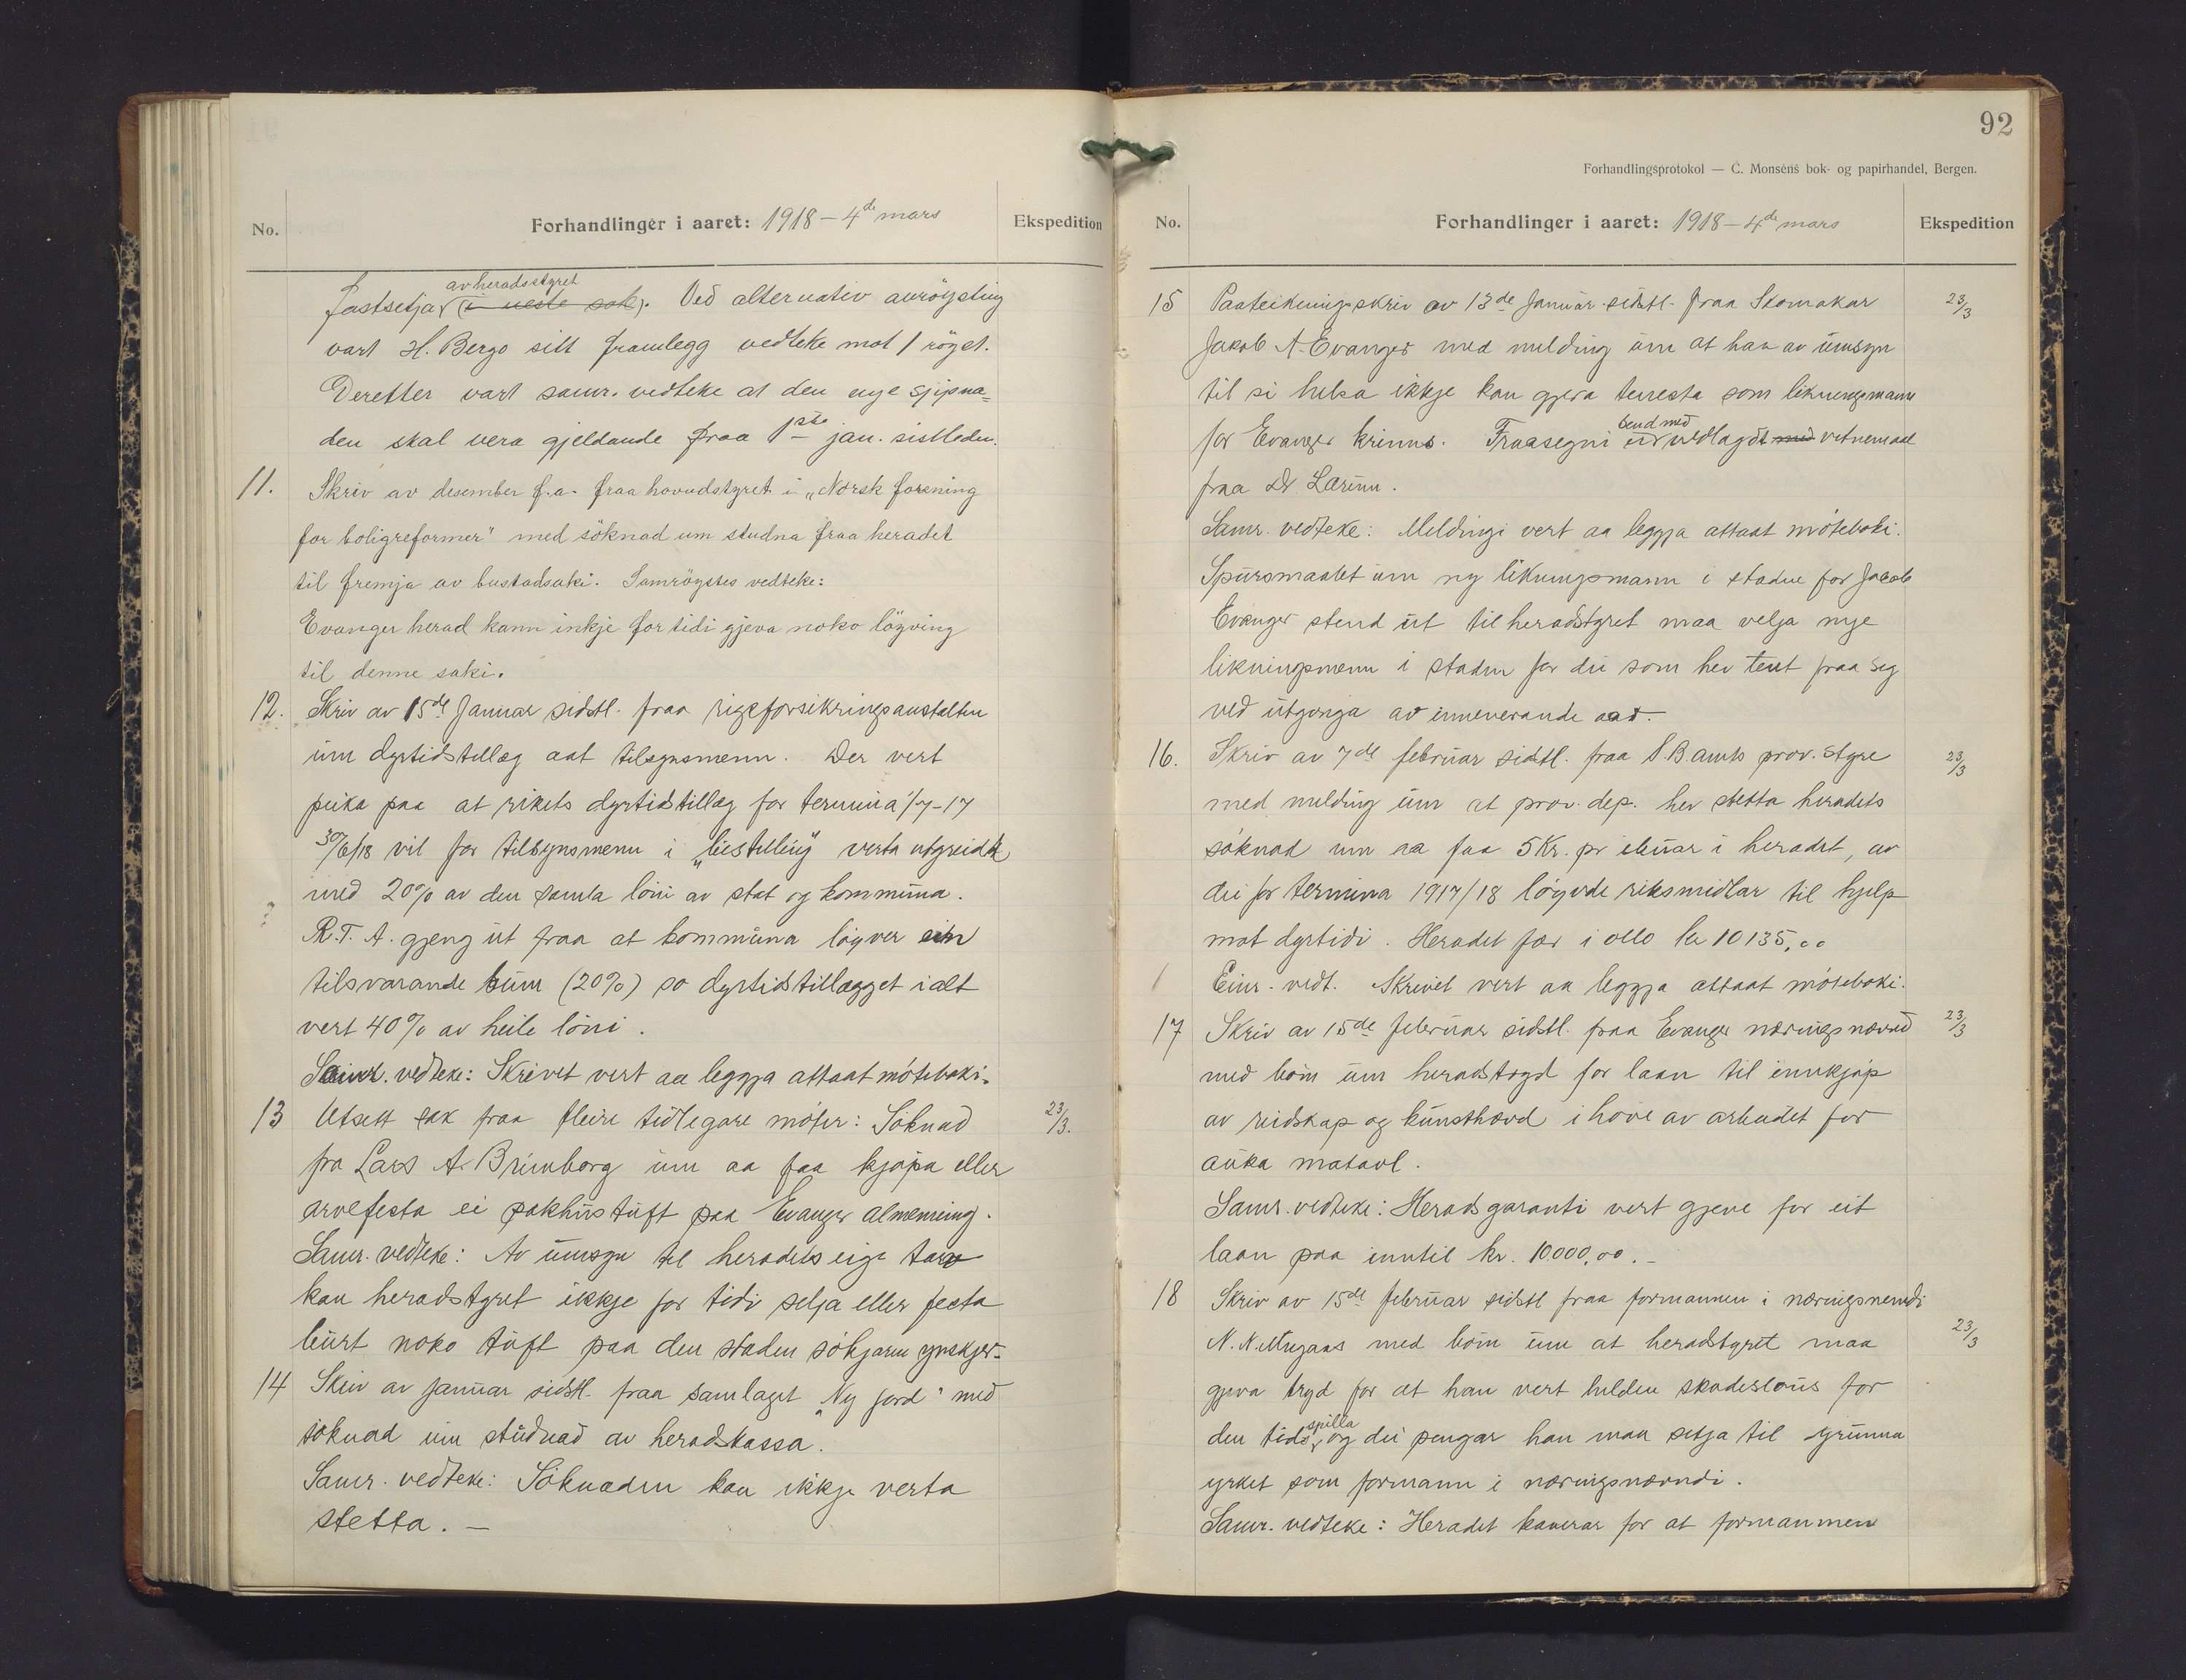 No.
Forhandlinger i aaret: 1918 – 4de mars
Ekspedition
fastsetja av heradsstyret (i neste sak). Ved alternativ avröysting
vart H. Bergo sitt framlegg vedteke mot 1 röyst.
Deretter vart samr. vedteke at den nye skipna=
den skal vera gjeldande fraa 1ste jan. sistleden.
11. Skriv av desember f.a. fraa hovudstyret i „Norsk forening
for boligreformer" med söknad um studna fraa heradet
til fremja av bustadsaki. Samröystes vedteke:
Evanger herad kann inkje for tidi gjeva noko löyving
til denne saki.
12. Skriv av 15de Januar sidstl. fraa rigsforsikringsanstalten
um dyrtidstillæg aat tilsynsmenn. Der vert
peika paa at rikets dyrtidstillæg for termina 1/7-17
30/6/18 vil for tilsynsmenn i „bistilling" verta utgreidt
med 20% av den samla löni av stat og kommuna.
R.T.A. gjeng ut fraa at kommuna löyver ein
tilsvarande sum (20%) so dyrtidstillægget i alt
vert 40% av heile löni.
Samr. vedteke: Skrivet vert aa leggja attaat möteboki.
13 Utsett sak fraa fleire tidlegare möter: Söknad 23/3.
fra Lars A. Brunborg um aa faa kjöpa eller
arvefesta ei pakhustuft paa Evanger almenning.
Samr. vedteke: Av umsyn til heradets eige tarv
kan heradstyret ikkje for tidi selja eller festa
burt noko tuft paa den staden sökjaren ynskjer.
14 Skriv av Januar sidstl. fraa samlaget „Ny jord" med
söknad um studnad av heradskassa.
Samr. vedteke: Söknaden kan ikkje verta
stetta. –
92
Forhandlingsprotokol — C. Monsens bok- og papirhandel, Bergen.
No.
Forhandlinger i aaret: 1918 – 4de mars
Ekspedition
15 Paateikningsskriv av 13de Januar sidstl. fraa Skomakar 23/3
Jakob A. Evanger med melding um at han av umsyn
til si helsa ikkje kan gjera tenesta som likningsmann
for Evanger krinns. Fraasegni er vedlagdt med send med vitnemaal
fraa Dr Lærum.
Samr. vedteke: Meldingi vert aa leggja attaat möteboki.
Spursmaalet um ny likningsmann i staden for Jacob
Evanger stend ut til heradstyret maa velja nye
likningsmenn i staden for dei som hev tent fraa seg
ved utgonga av inneverande aar.
16. Skriv av 7de februar sidstl. fraa S.B. amts prov. styre 23/3
med melding um at prov. dep. hev stetta heradets
söknad um aa faa 5 Kr. pr ibuar i heradet, av
dei for termina 1917/18 löyvde riksmidlar til hjelp
mot dyrtidi. Heradet fær i ollo kr 10135,00
Einr. vedt. Skrivet vert aa leggja attaat möteboki.
17 Skriv av 15de februar sidstl. fraa Evanger næringsnævnd 23/3
med bön um heradstrygd for laan til innkjöp
av reidskap og kunsthævd i höve av arbeidet for
auka matavl.
Samr. vedteke: Heradsgaranti vert gjeve for eit
laan paa inntil kr. 10000,00. –
18 Skriv av 15de februar sidstl fraa formannen i næringsnemdi
N. N. Mugaas med bön um at heradstyret maa 23/3
gjeva trygd for at han vert helden skadeslaus for
den tidspilla og dei pengar han maa setja til grunna
yrket som formann i næringsnævndi.
Samr. vedteke: Heradet kaverar for at formannen